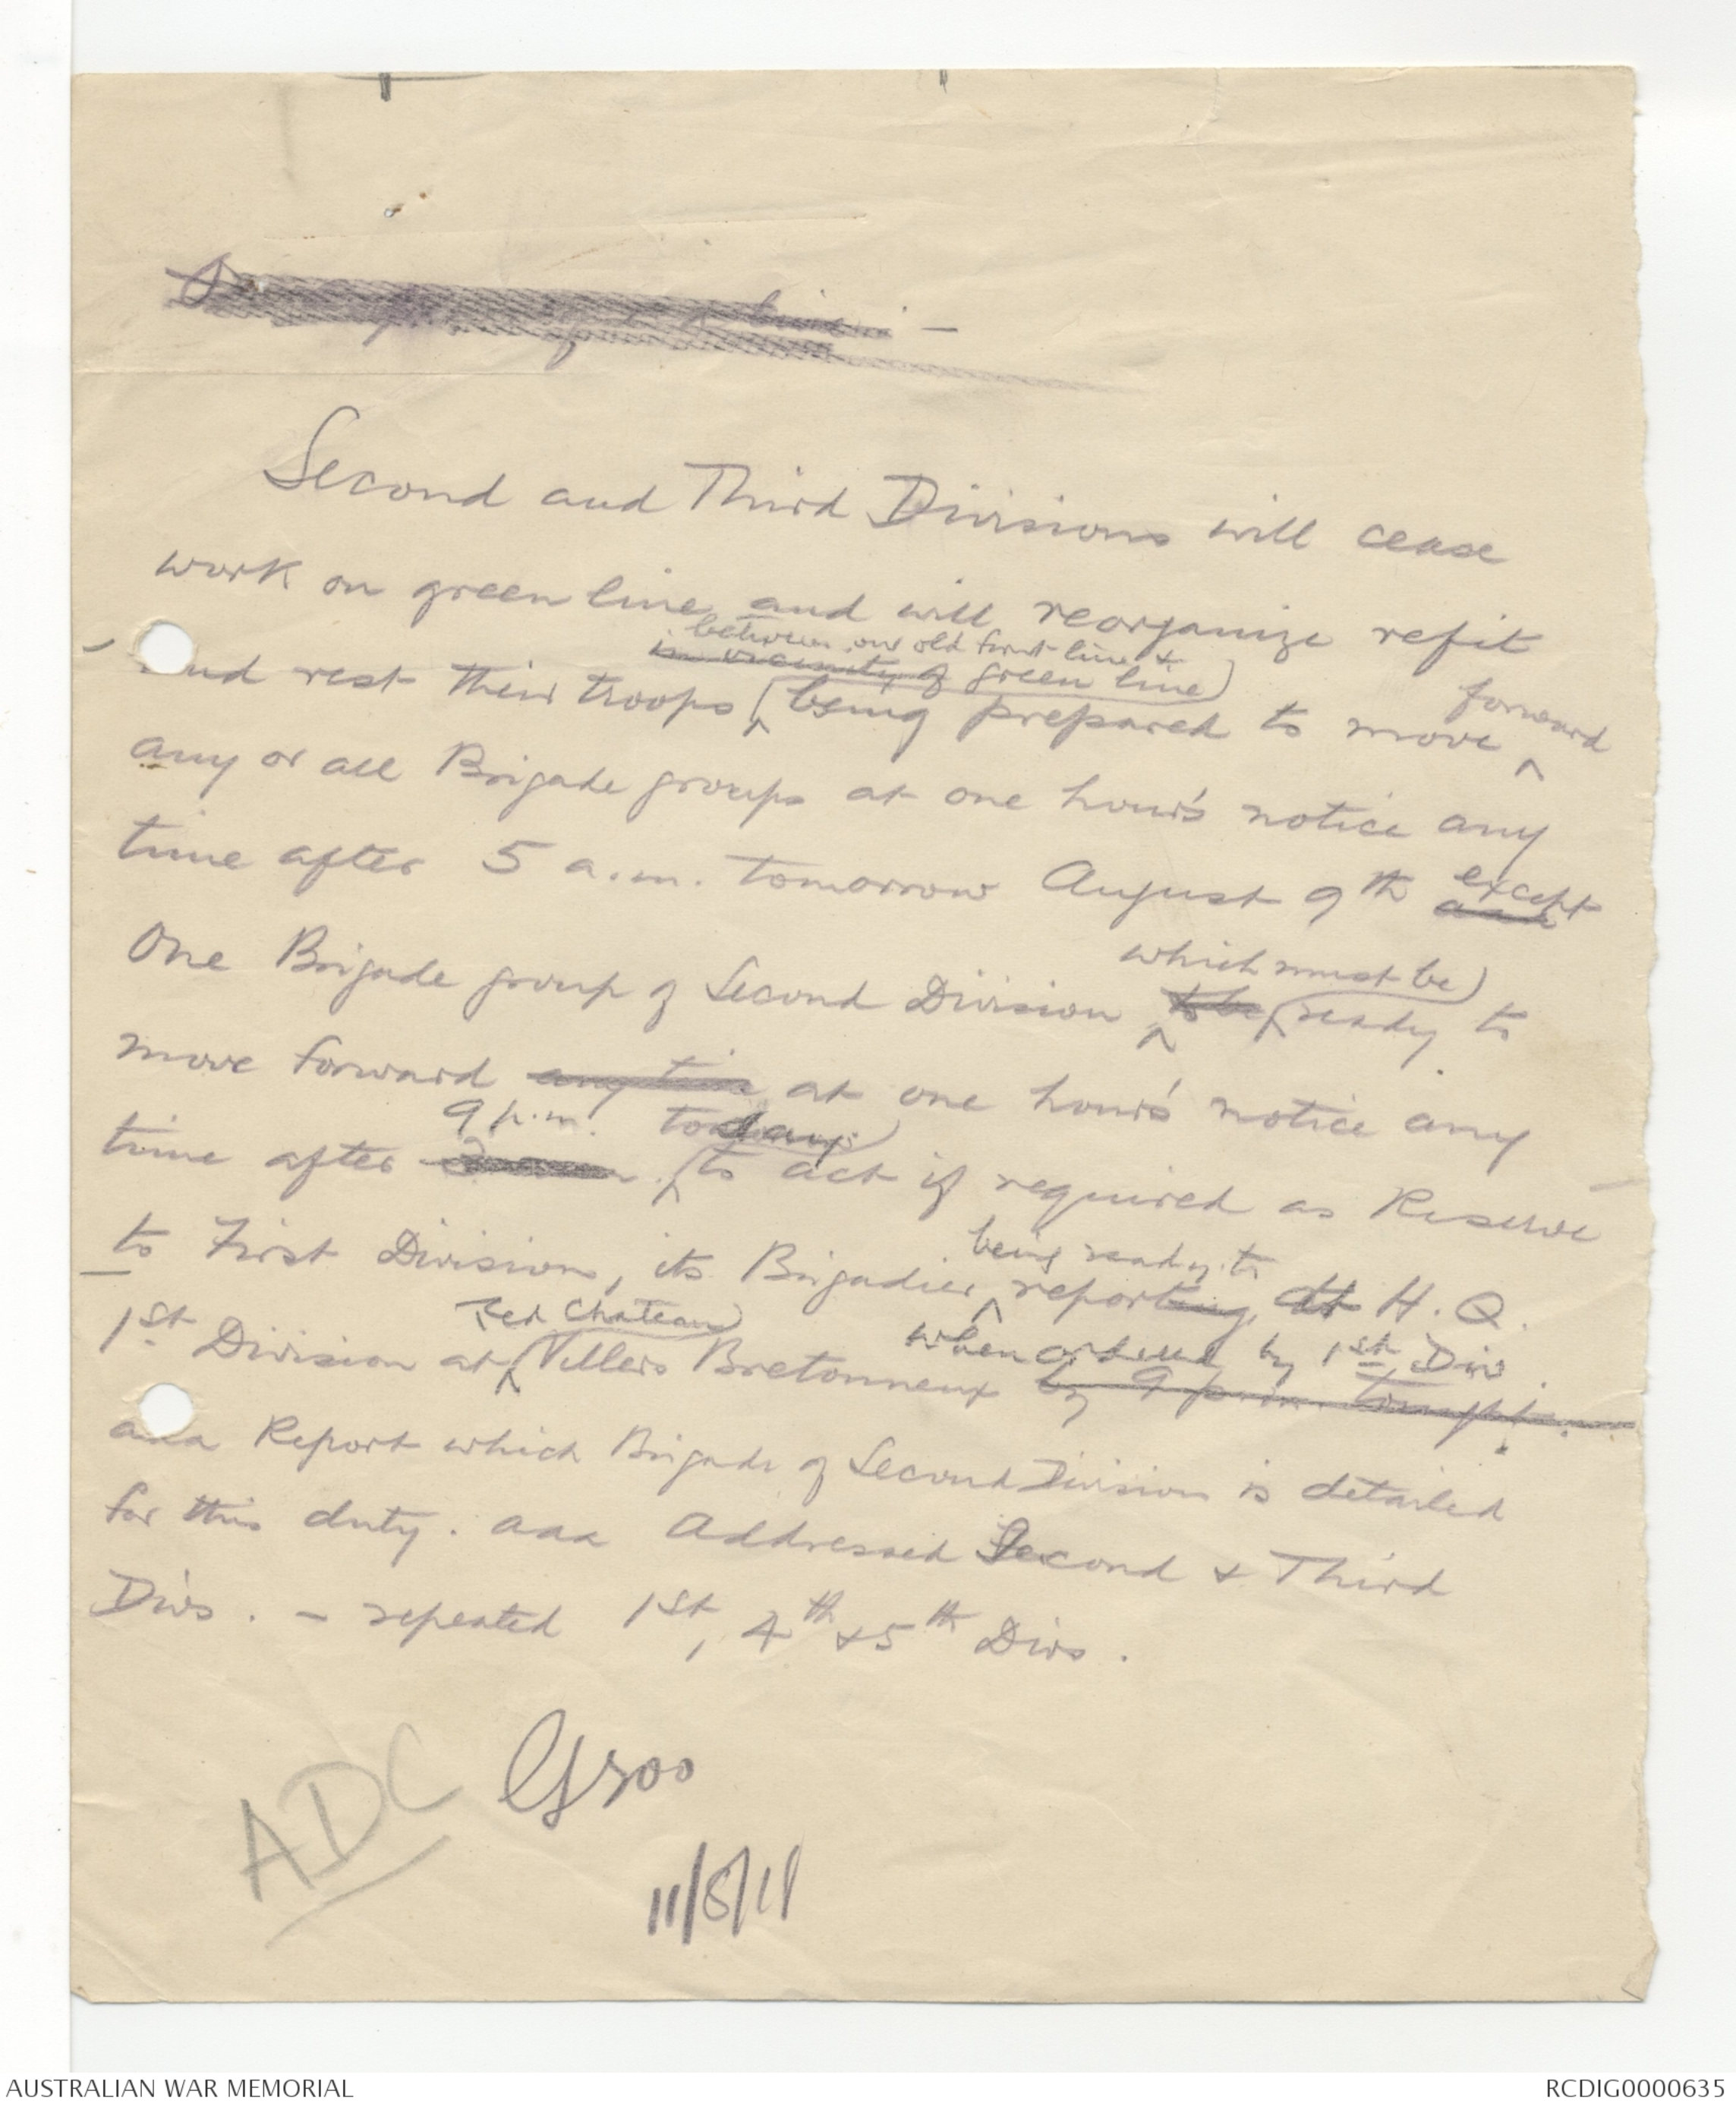 Second and Third Divisions will cease
work on green line and will reorganize refit
between our old front line &
in vicinity of green line
and rest their troops being prepared to move forward
any or all Brigade groups at one hour's notice any
time after 5 a.m. tomorrow August 9th except
which must be
One Brigade group of Second Division to be ready to
move forward any time at one hour's notice any
9 p.m. today
time after to act if required as Reserve
being ready to
to First Division, its Brigadier reporting at H.Q.
Red Chateau when ordered by 1st Div
1st Division at Villers Bretonneux by 9 p.m. tonight.
aaa Report which Brigade of Second Division is detailed
for this duty. aaa Addressed Second & Third
Divs. - repeated 1st, 4th & 5th Divs.
ADC
AUSTRALIAN WAR MEMORIAL
RCDIG0000635